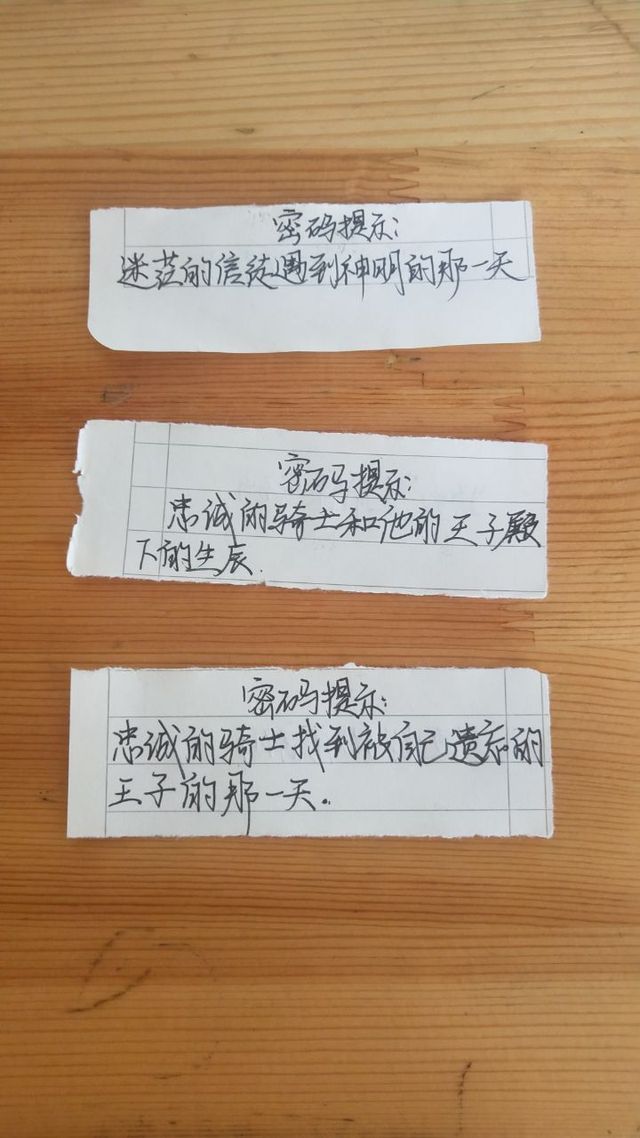 密码提示:
迷茫的信徒遇到神明的那一天
密码提示:
忠诚的骑士和他的王子殿
下的生辰.
密码提示:
忠诚的骑士找到被自己遗忘的
王子的那一天。